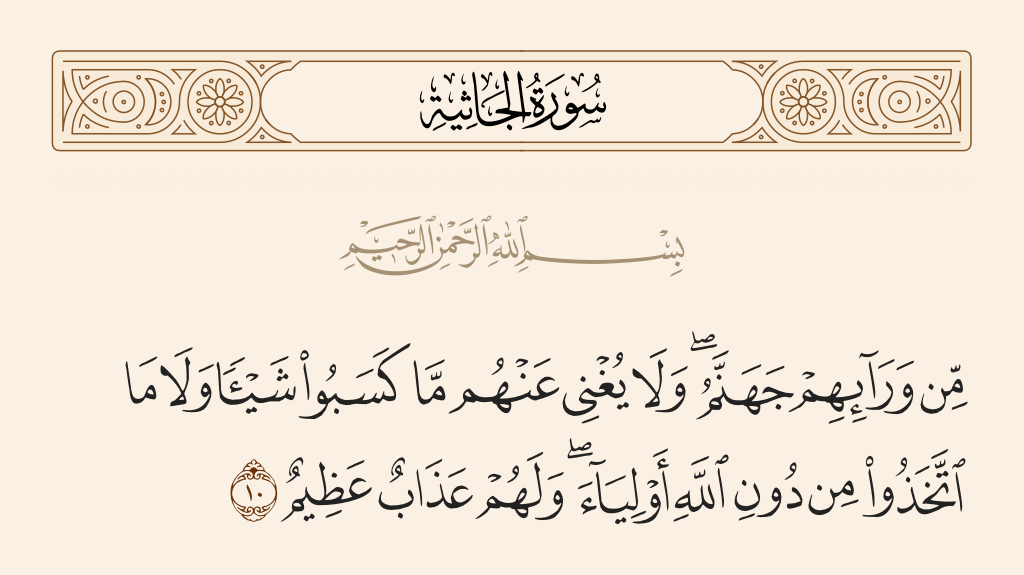 سُورَةُ الجَاثِيةِ
بِسْمِ ٱللَّهِ ٱلرَّحْمَٰنِ ٱلرَّحِيمِ
مِّن وَرَآئِهِمْ جَهَنَّمُ ۖ وَلَا يُغْنِى عَنْهُم مَّا كَسَبُوا۟ شَيْـًٔا وَلَا مَا
ٱتَّخَذُوا۟ مِن دُونِ ٱللَّهِ أَوْلِيَآءَ ۖ وَلَهُمْ عَذَابٌ عَظِيمٌ ١٠